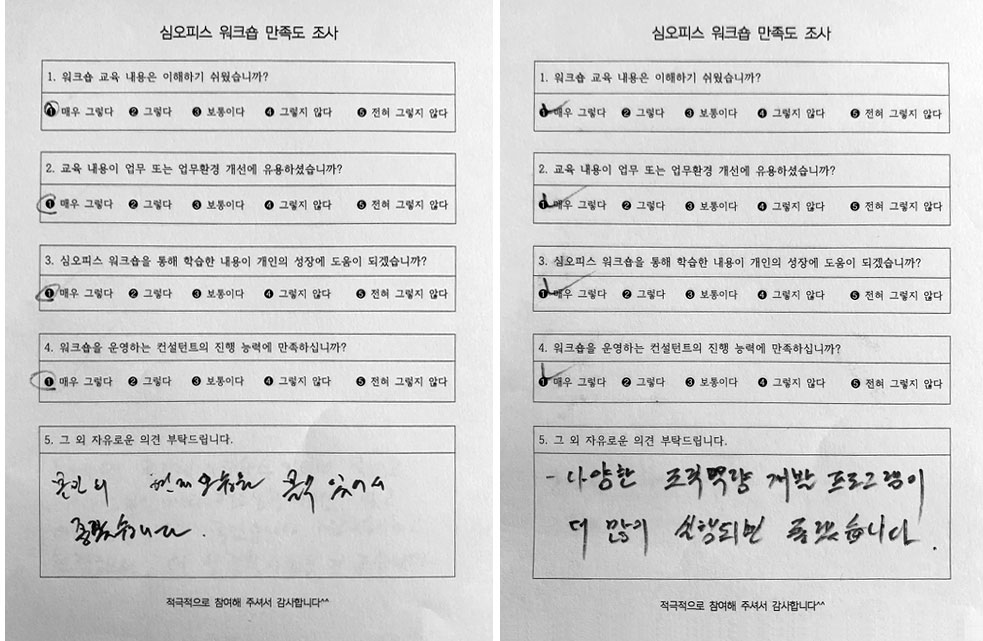 심오피스 워크숍 만족도 조사
1. 워크숍 교육 내용은 이해하기 쉬웠습니까?
❶ 매우 그렇다 ❷ 그렇다 ❸ 보통이다 ❹ 그렇지 않다 ❺ 전혀 그렇지 않다
2. 교육 내용이 업무 또는 업무환경 개선에 유용하셨습니까?
❶ 매우 그렇다 ❷ 그렇다 ❸ 보통이다 ❹ 그렇지 않다 ❺ 전혀 그렇지 않다
3. 심오피스 워크숍을 통해 학습한 내용이 개인의 성장에 도움이 되겠습니까?
❶ 매우 그렇다 ❷ 그렇다 ❸ 보통이다 ❹ 그렇지 않다 ❺ 전혀 그렇지 않다
4. 워크숍을 운영하는 컨설턴트의 진행 능력에 만족하십니까?
❶ 매우 그렇다 ❷ 그렇다 ❸ 보통이다 ❹ 그렇지 않다 ❺ 전혀 그렇지 않다
5. 그 외 자유로운 의견 부탁드립니다.
있어서
좋았습니다.
적극적으로 참여해 주셔서 감사합니다^^
심오피스 워크숍 만족도 조사
1. 워크숍 교육 내용은 이해하기 쉬웠습니까?
❶ 매우 그렇다 ❷ 그렇다 ❸ 보통이다 ❹ 그렇지 않다 ❺ 전혀 그렇지 않다
2. 교육 내용이 업무 또는 업무환경 개선에 유용하셨습니까?
❶ 매우 그렇다 ❷ 그렇다 ❸ 보통이다 ❹ 그렇지 않다 ❺ 전혀 그렇지 않다
3. 심오피스 워크숍을 통해 학습한 내용이 개인의 성장에 도움이 되겠습니까?
❶ 매우 그렇다 ❷ 그렇다 ❸ 보통이다 ❹ 그렇지 않다 ❺ 전혀 그렇지 않다
4. 워크숍을 운영하는 컨설턴트의 진행 능력에 만족하십니까?
❶ 매우 그렇다 ❷ 그렇다 ❸ 보통이다 ❹ 그렇지 않다 ❺ 전혀 그렇지 않다
5. 그 외 자유로운 의견 부탁드립니다.
- 다양한 조직역량 개발 프로그램이
더 많이 실행되면 좋겠습니다.
적극적으로 참여해 주셔서 감사합니다^^